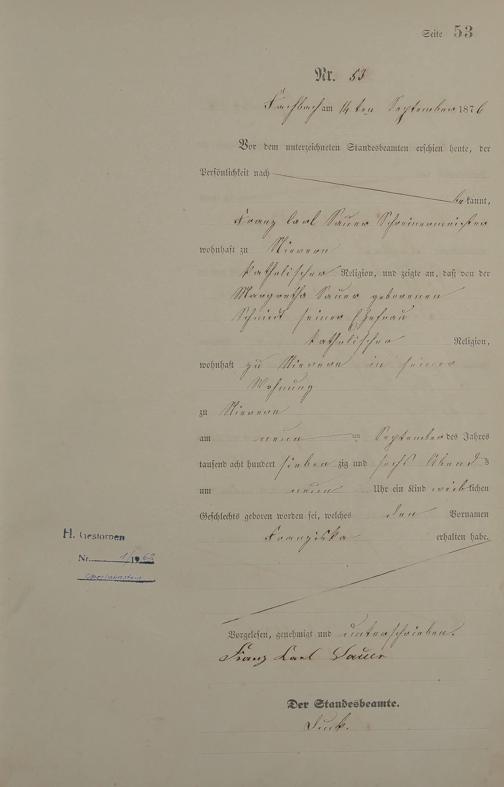 Seite 53
Nr. 53
Fachbach am 14 ten September 1876
Vor dem unterzeichneten Standesbeamten erschien heute, der
Persönlichkeit nach
bekannt,
Franz Carl Sauer Schreinermeister
wohnhaft zu Nievern
katholischer Religion, und zeigte an, daß von der
Margretha Sauer geborenen
Schmidt seiner Ehefrau
katholischer Religion,
wohnhaft zu Nievern in seiner
Wohnung
zu Nievern
am neun ten September des Jahres
tausend acht hundert sieben zig und sechs Abends
um neun Uhr ein Kind weiblichen
Geschlechts geboren worden sei, welches den Vornamen
Franziska erhalten habe.
H. Gestorben
Nr. 1/1962
Vorgelesen, genehmigt und unterschrieben.
Franz Carl Sauer
Der Standesbeamte.